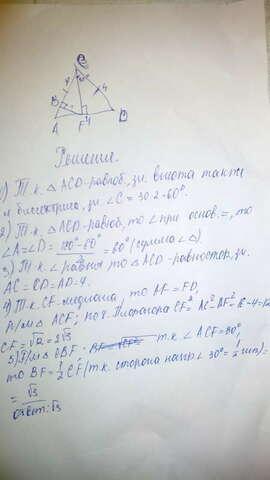 C
4
4
B
A F 4 D
Решение.
1) Т.к. △ ACD-равноб, зн. высота также
и биссектриса, зн. ∠C = 30·2=60°.
2) Т.к. △ ACD-равноб, то ∠ при основ. =, то
∠A=∠D= 180°-60° / 2 = 60° (сумма ∠ △)
3) Т.к ∠ равны то △ ACD-равностор, зн.
AC=CD=AD=4.
4) Т.к. CF-медиана, то AF=FD,
Р/м △ ACF; по т. Пифагора CF²=AC²-AF²
CF=√12=2√3
5) Р/м △ CBF- т.к. ∠ACF=30°,
то BF=½CF (т.к. сторона напр ∠ 30°=½ гип)=
= √3
Ответ: √3